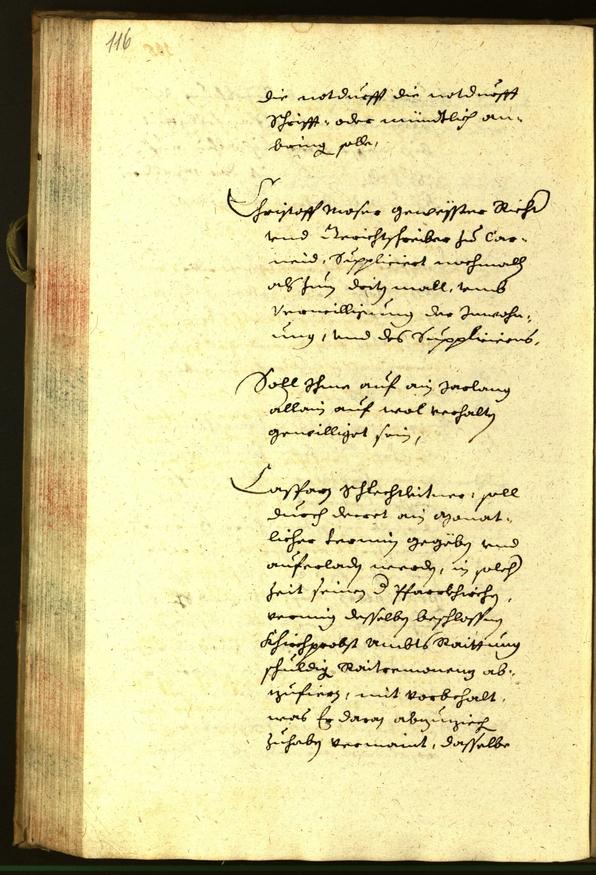 116
die notdurfft die notdurfft
Schrifft: oder mündtlich an-
bring solle,
Christoff Moser gewester Richt
vnd Gerichtschreiber zu Car-
neid, Suppliciert nochmalß
als zum dritn mall, vmb
Verwilligung der Inwohn-
ung, vnd des Suppliciers,
Soll Ihme auf ain Jarlang
allain auf wol verhaltn
gewilliget sein,
Casspar Schlechtleitner, soll
durch decret ain Monat-
licher termin gegebn vnd
auferladn werdn, in solch
Zeit seinen d Pfarrkhirchn,
vermüg desselbn beschlossnen
Khirchprobst Ambts Raittung
schuldig Rait abzu-
fiern, mit vorbehalt,
was Er daran abzuziechn
zuhabn vermaint, dasselbe